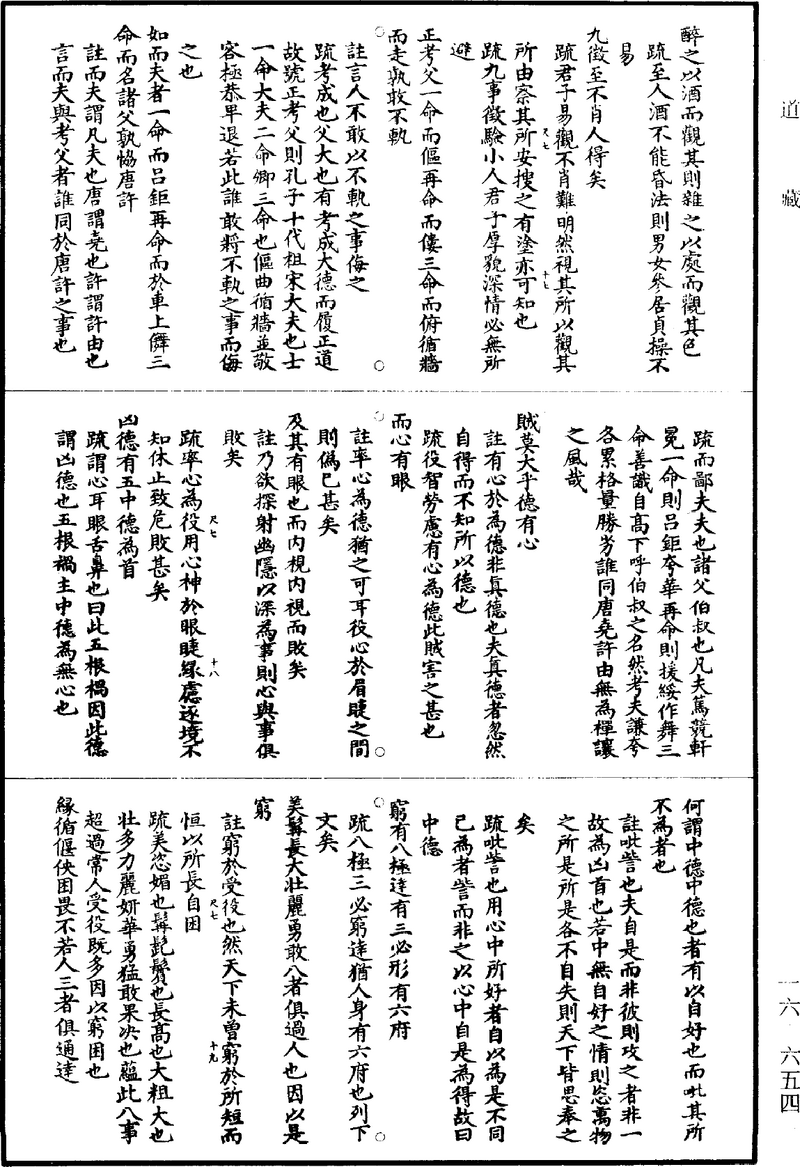 道藏
醉之以酒而觀其則雜之以處而觀其色
疏至人酒不能昏法則男女參居貞操不
易
九徵至不肖人得矣
疏君子易觀不肖難明然視其所以觀其
所由察其所安搜之有塗亦可知也
疏九事徵驗小人君子厚貌深情必無所
避
正考父一命而傴再命而僂三命而俯循牆
而走孰敢不軌
註言人不敢以不軌之事侮之
疏考成也父大也有考成大德而履正道
故號正考父則孔子十代祖宋大夫也士
一命大夫二命卿三命也傴曲循牆並敬
容極恭卑退若此誰敢將不軌之事而侮
之也
如而夫者一命而呂鉅再命而於車上儛三
命而名諸父孰恊唐許
註而夫謂凡夫也唐謂堯也許謂許由也
言而夫與考父者誰同於唐許之事也
尺七
十七
疏而鄙夫夫也諸父伯叔也凡夫篤競軒
冕一命則呂鉅夸華再命則援綏作舞三
命善識自高下呼伯叔之名然考夫謙夸
各累格量勝劣誰同唐堯許由無為禪讓
之風哉
賊莫大乎德有心
註有心於為德非真德也夫真德者忽然
自得而不知所以德也
疏役智勞慮有心為德此賊害之甚也
而心有眼
註率心為德猶之可耳役心於眉睫之間
則偽已甚矣
及其有眼也而內視內視而敗矣
註乃欲探射幽隱以深為事則心與事俱
敗矣
疏率心為役用心神於眼睫緣慮逐境不
知休止致危敗甚矣
凶德有五中德為首
疏謂心耳眼舌鼻也曰此五根禍因此德
謂凶德也五根禍主中德為無心也
尺七
十八
何謂中德中德也者有以自好也而吡其所
不為者也
註吡訾也夫自是而非彼則攻之者非一
故為凶首也若中無自好之情則恣萬物
之所是所是各不自失則天下皆思奉之
矣
疏吡訾也用心中所好者自以為是不同
已為者訾而非之以心中自是為得故曰
中德
窮有八極達有三必形有六府
疏八極三必窮達猶人身有六府也列下
文矣
美髯長大壯麗勇敢八者俱過人也因以是
窮
註窮於受役也然天下未曾窮於所短而
恒以所長自困
疏美恣媚也髯髭鬢也長高也大粗大也
壯多力麗妍華勇猛敢果決也蘊此八事
超過常人受役既多因以窮困也
緣循偃佒困畏不若人三者俱通達
尺七
十九
一六·六五四